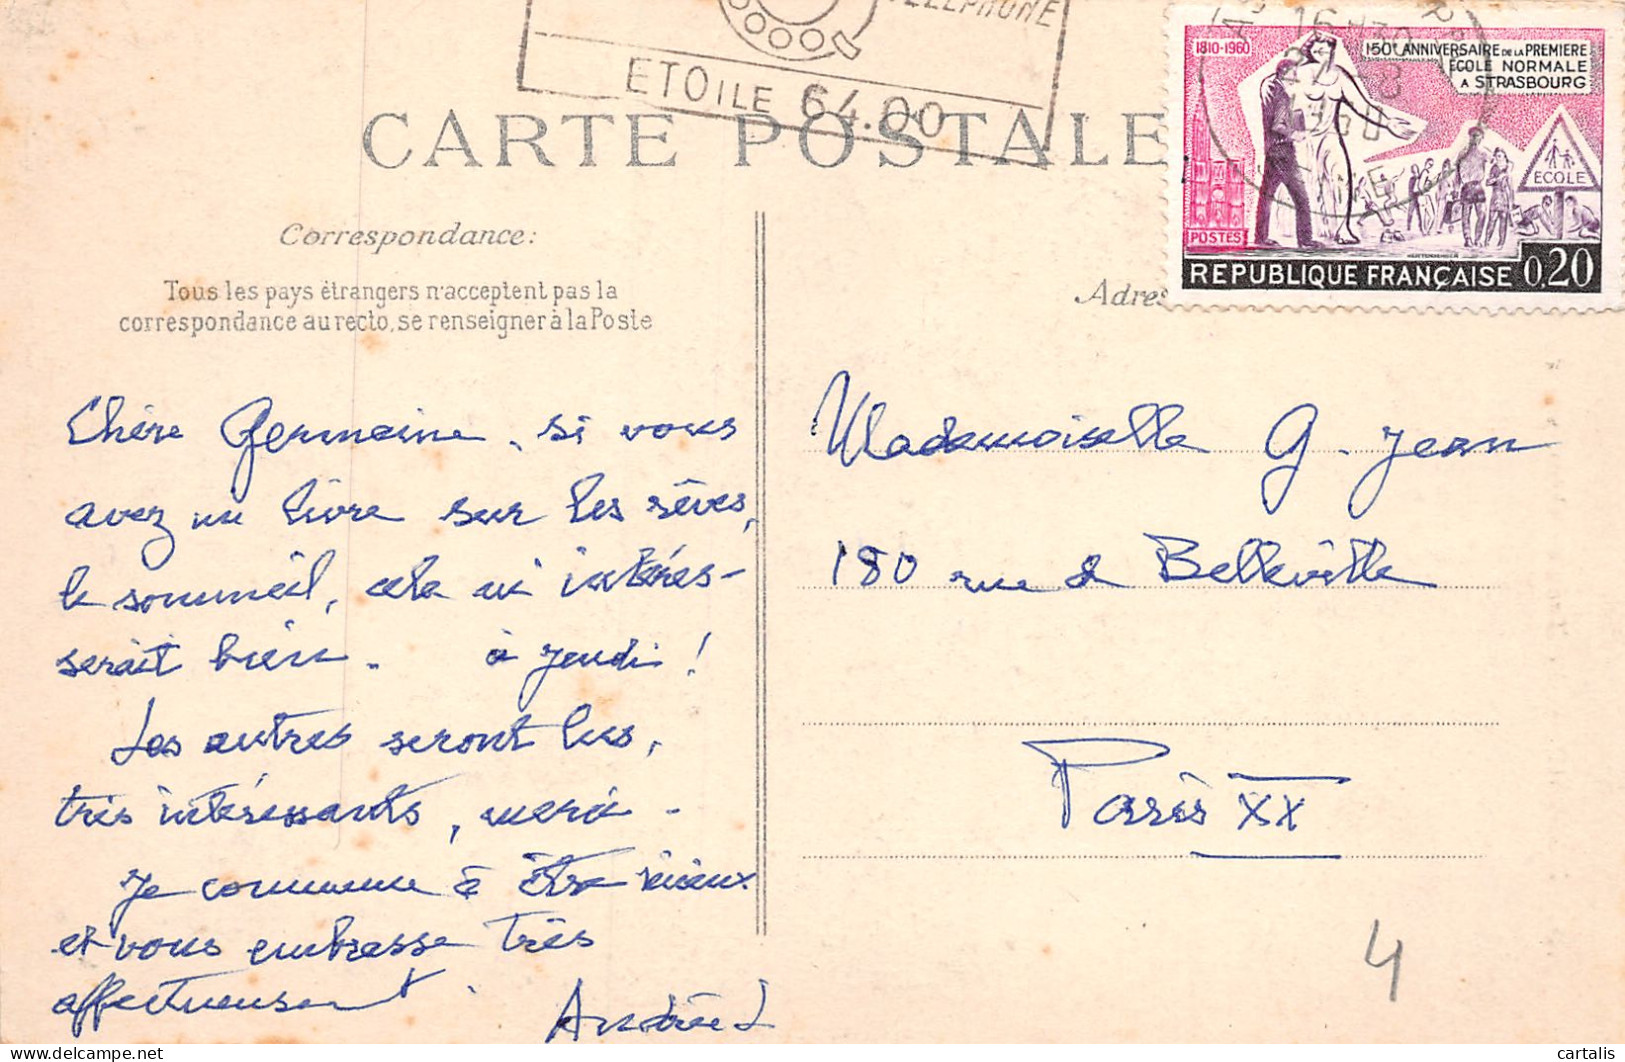 TELEPHONE
ETOILE 64.00
CARTE POSTALE
1810-1960
150e ANNIVERSAIRE DE LA PREMIERE
ECOLE NORMALE
A STRASBOURG
ECOLE
POSTES
REPUBLIQUE FRANÇAISE 0,20
Correspondance:
Tous les pays étrangers n'acceptent pas la
correspondance au recto, se renseigner à la Poste
Adres
Chère Germaine, si vous
avez un livre sur les rêves,
le sommeil, cela m'intéres-
serait bien. à jeudi !
Les autres seront lus,
très intéressants, merci -
Je commence à être mieux
et vous embrasse très
affectueusement.
Andrée L
Mademoiselle G. Jean
180 rue de Belleville
Paris XX
4
cartalis
delcampe.net